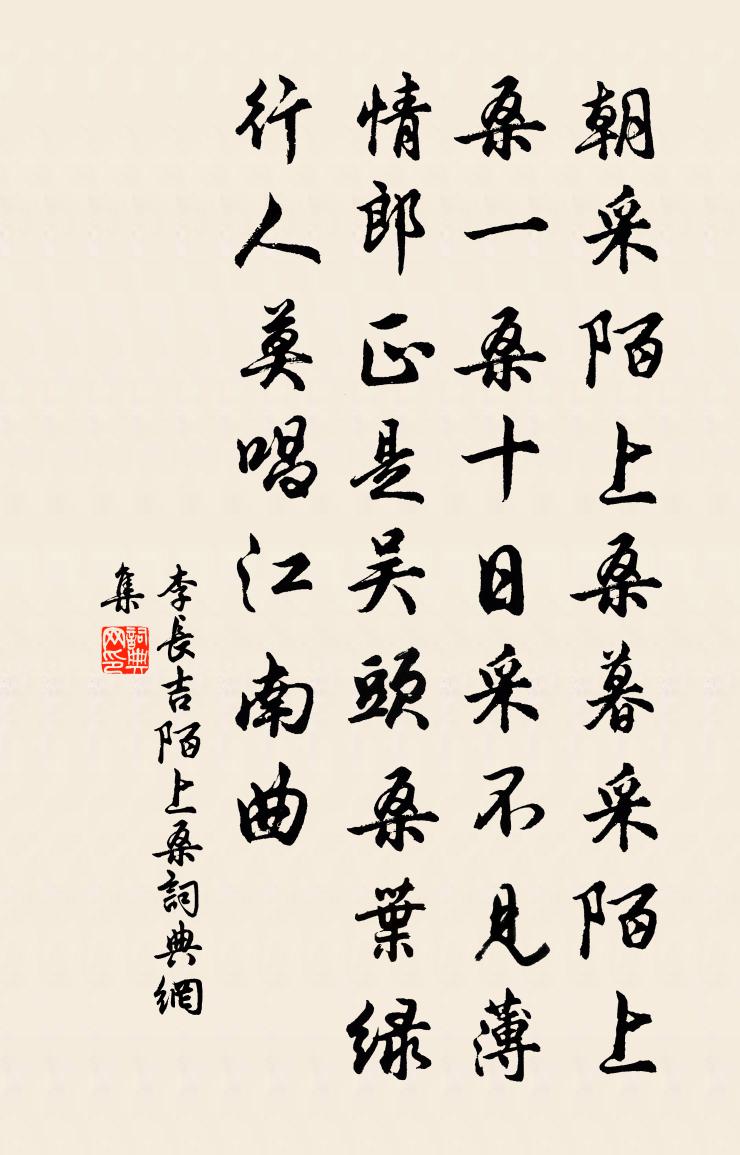 朝采陌上桑暮采陌上
桑一桑十日采不見薄
情郎正是吴頭桑葉緑
行人莫唱江南曲
李長吉陌上桑詞典網
集
詞典网印